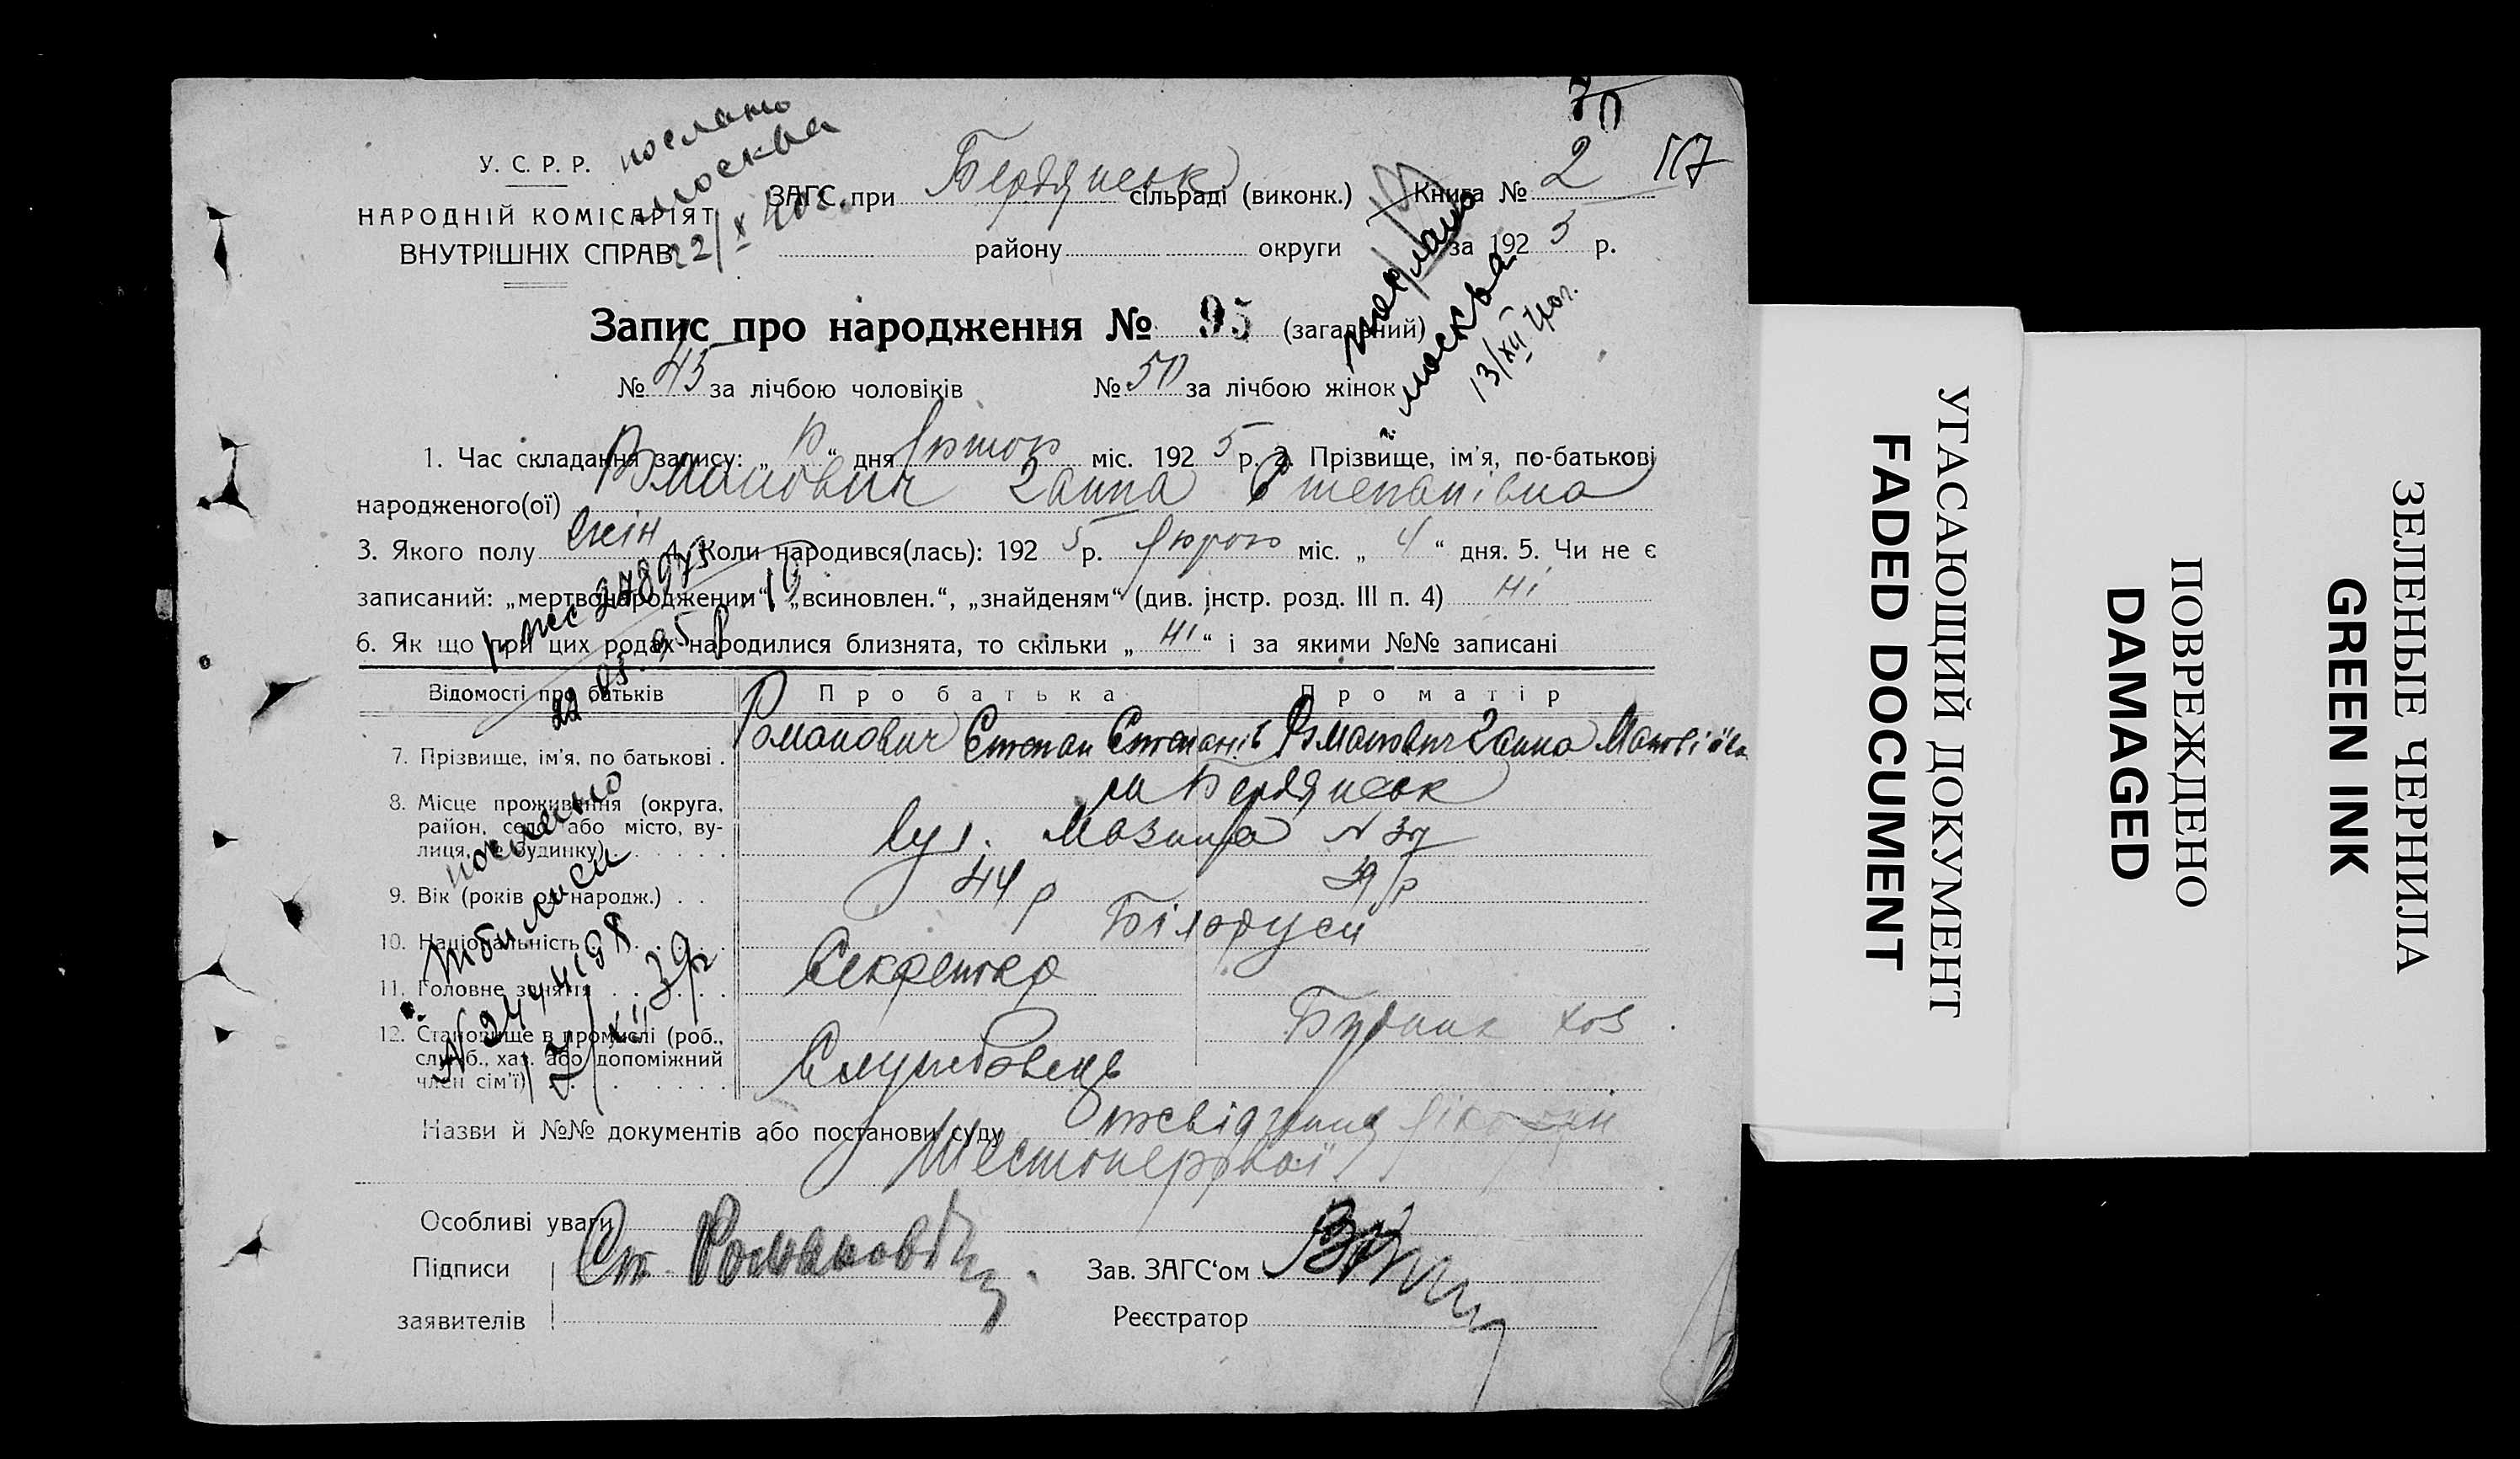 70
У. С. Р. Р.
НАРОДНІЙ КОМІСАРІЯТ
ВНУТРІШНІХ СПРАВ
послано
москва
22/X 40г.
ЗАГС при Бердянськ сільраді (виконк.) Книга № 2 117
району округи за 192 5 р.
послано
москва
13/XII 40г.
Запис про народження № 95 (загальний)
№ 45 за лічбою чоловіків № 50 за лічбою жінок
1. Час складання запису: „ “ дня Лютого міс. 192 5 р. 2. Прізвище, ім’я, по-батькові
народженого(ої) Романович Ганна Степанівна
3. Якого полу жін 4. Коли народився(лась): 192 5 р. Лютого міс. „ 4 “ дня. 5. Чи не є
записаний: „мертвонародженим“, „всиновлен.“, „знайденям“ (див. інстр. розд. III п. 4) ні
6. Як що при цих родах народилися близнята, то скільки „ ні “ і за якими №№ записані
Відомості про батьків Про батька Про матір
7. Прізвище, ім’я, по батькові . Романович Степан Степанів Романович Ганна Матвіївна
8. Місце проживання (округа, район, село або місто, вулиця, № будинку) м Бердянськ
вул. Мазина N
9. Вік (років од народж.) . . 44 р 39 р
10. Національність Білоруси
11. Головне заняття Секретар
12. Становище в промислі (роб., служб., хаз. або допоміжний член сім’ї) Службовець Будинк хоз
послано
Тбилиси
39г
Назви й №№ документів або постанови суду Посвідчення лікарки
Шестоперової
Особливі уваги
Підписи Ст. Романовіч Зав. ЗАГС‘ом
заявителів Реєстратор
УГАСАЮЩИЙ ДОКУМЕНТ
FADED DOCUMENT
ПОВРЕЖДЕНО
DAMAGED
ЗЕЛЕНЫЕ ЧЕРНИЛА
GREEN INK